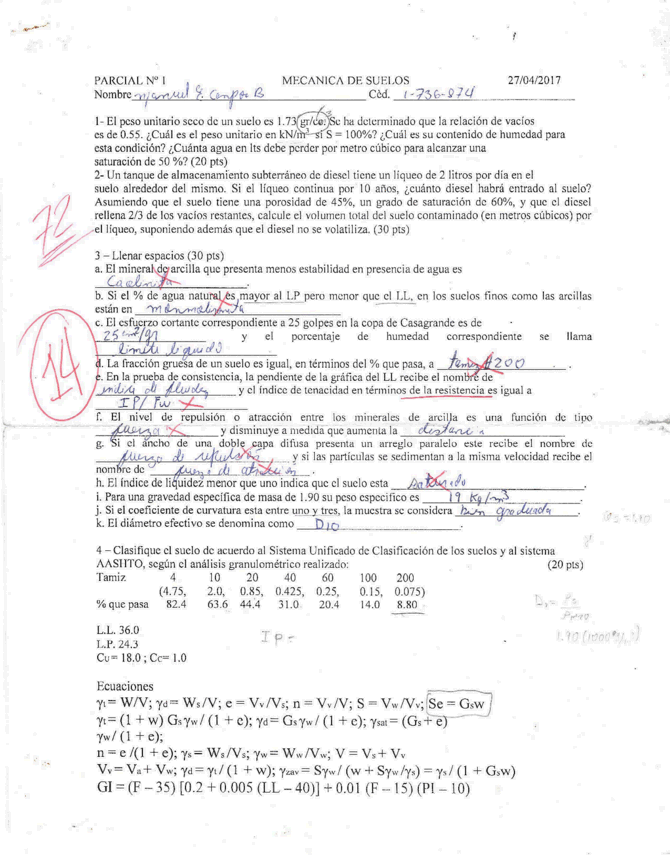 PARCIAL Nº 1 MECANICA DE SUELOS 27/04/2017
Nombre Manuel E. Campos B Cèd. 1-736-874
1- El peso unitario seco de un suelo es 1.73 gr/cc. Se ha determinado que la relación de vacíos
es de 0.55. ¿Cuál es el peso unitario en kN/m³ si S = 100%? ¿Cuál es su contenido de humedad para
esta condición? ¿Cuánta agua en lts debe perder por metro cúbico para alcanzar una
saturación de 50 %? (20 pts)
2- Un tanque de almacenamiento subterráneo de diesel tiene un líqueo de 2 litros por día en el
suelo alrededor del mismo. Si el líqueo continua por 10 años, ¿cuánto diesel habrá entrado al suelo?
Asumiendo que el suelo tiene una porosidad de 45%, un grado de saturación de 60%, y que el diesel
rellena 2/3 de los vacíos restantes, calcule el volumen total del suelo contaminado (en metros cúbicos) por
el líqueo, suponiendo además que el diesel no se volatiliza. (30 pts)
72
3 – Llenar espacios (30 pts)
a. El mineral de arcilla que presenta menos estabilidad en presencia de agua es
Caolinita.
b. Si el % de agua natural es mayor al LP pero menor que el LL, en los suelos finos como las arcillas
están en monmolionita
c. El esfuerzo cortante correspondiente a 25 golpes en la copa de Casagrande es de
y el porcentaje de humedad correspondiente se llama
limite liquido.
14
d. La fracción gruesa de un suelo es igual, en términos del % que pasa, a tamiz #200.
e. En la prueba de consistencia, la pendiente de la gráfica del LL recibe el nombre de
indice de fluidez y el índice de tenacidad en términos de la resistencia es igual a
IP/Fw
f. El nivel de repulsión o atracción entre los minerales de arcilla es una función de tipo
fuerza y disminuye a medida que aumenta la distancia
g. Si el ancho de una doble capa difusa presenta un arreglo paralelo este recibe el nombre de
fuerza de repulsión y si las partículas se sedimentan a la misma velocidad recibe el
nombre de fuerza de atracción.
h. El índice de liquidez menor que uno indica que el suelo esta Saturado
i. Para una gravedad específica de masa de 1.90 su peso especifico es 19 Kg/m³
j. Si el coeficiente de curvatura esta entre uno y tres, la muestra se considera bien graduada.
k. El diámetro efectivo se denomina como D10.
Gs = 1.90
4 – Clasifique el suelo de acuerdo al Sistema Unificado de Clasificación de los suelos y al sistema
AASHTO, según el análisis granulométrico realizado: (20 pts)
Tamiz 4 10 20 40 60 100 200
(4.75, 2.0, 0.85, 0.425, 0.25, 0.15, 0.075)
% que pasa 82.4 63.6 44.4 31.0 20.4 14.0 8.80
L.L. 36.0
IP =
L.P. 24.3
Cu = 18.0 ; Cc= 1.0
Ecuaciones
γt = W/V; γd = Ws/V; e = Vv/Vs; n = Vv/V; S = Vw/Vv; Se = Gsw
γt = (1 + w) Gsγw / (1 + e); γd = Gsγw / (1 + e); γsat = (Gs + e)
γw / (1 + e);
n = e /(1 + e); γs = Ws/Vs; γw = Ww/Vw; V = Vs + Vv
Vv = Va + Vw; γd = γt / (1 + w); γzav = Sγw / (w + Sγw/γs) = γs / (1 + Gsw)
GI = (F – 35) [0.2 + 0.005 (LL – 40)] + 0.01 (F – 15) (PI – 10)